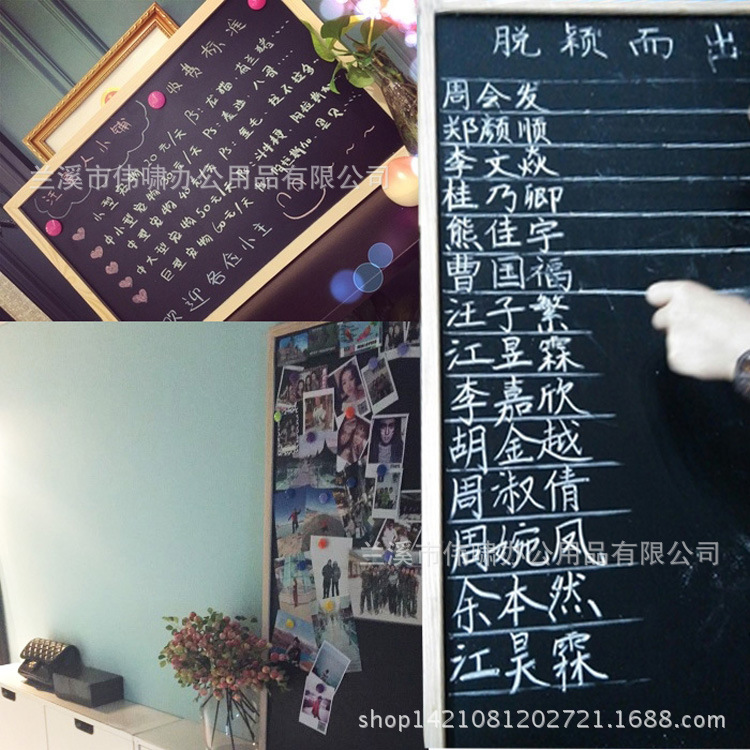 收费标准
小型宠物30元/天
中型宠物
中大型宠物50元/天
巨型宠物60元/天
欢迎各位小主
兰溪市伟啸办公用品有限公司
脱颖而出
周会发
郑颜顺
李文焱
桂乃卿
熊佳宇
曹国福
汪子繁
江昱霖
李嘉欣
胡金越
周淑倩
周婉凤
余本然
江昊霖
兰溪市伟啸办公用品有限公司
shop1421081202721.1688.com